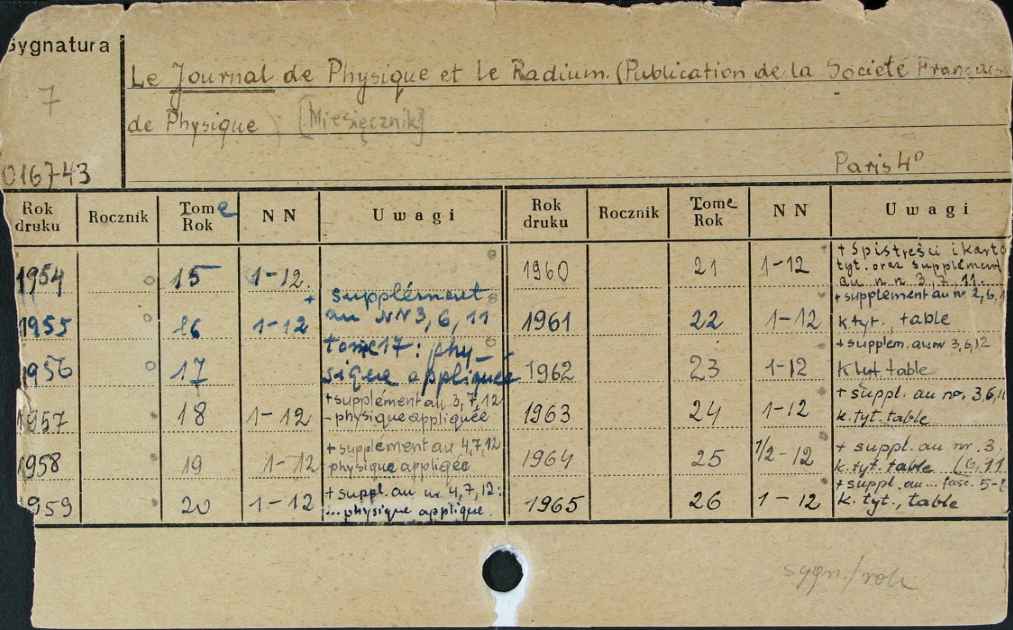 Sygnatura
Le Journal de Physique et le Radium. (Publication de la Societé Française
7
de Physique [Miesięcznik]
016743
Paris 4°
Rok druku Rocznik Tome Rok NN Uwagi Rok druku Rocznik Tome Rok NN Uwagi
1954 15 1-12 1960 21 1-12 + Spis treści i karta
tyt. oraz supplement
au n n 3, 7, 11.
+ supplément
1955 16 1-12 au NN 3, 6, 11 1961 22 1-12 + supplement au nr 2, 6, 1
k. tyt., table
1956 17 tome 17: phy-
sique appliquée 1962 23 1-12 + supplem. au nr 3,6,12
k. tyt table
1957 18 1-12 + supplément au 3,7,12
- physique appliquée 1963 24 1-12 + suppl. au nr. 3,6,11
k. tyt. table
1958 19 1-12 + supplement au 4,7,12
physique appligée 1964 25 1/2-12 + suppl. au nr. 3
k. tyt. table (6,11
1959 20 1-12 + suppl. au nr. 4,7,12:
... physique applique. 1965 26 1-12 + suppl. au ... fasc. 5-
k. tyt., table
sygn./rok